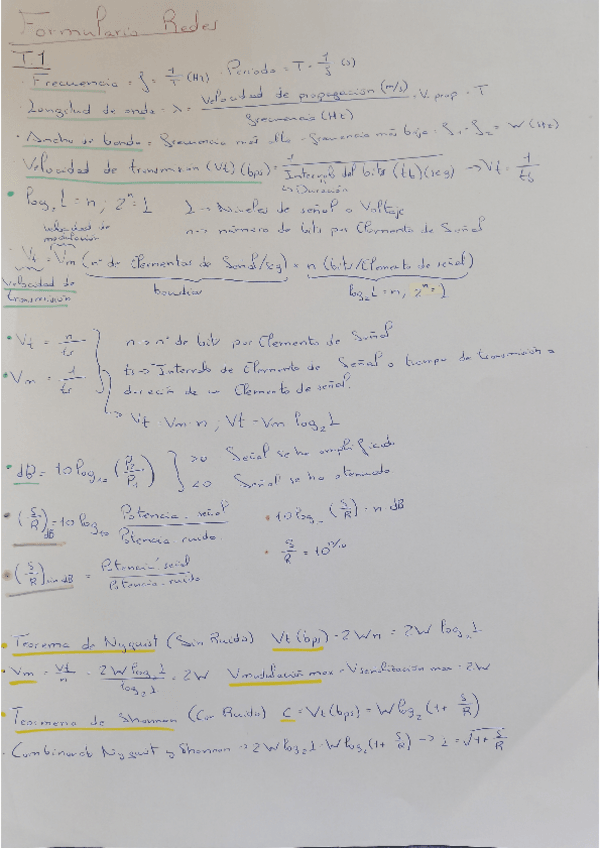 Formulario Redes
T.1
· Frecuencia = f = 1/T (Hz) · Periodo = T = 1/f (s)
· Longitud de onda = λ = Velocidad de propagación (m/s) / frecuencia (Hz) = V prop · T
· Ancho de banda = frecuencia más alta - frecuencia más baja = f1 - f2 = W (Hz)
Velocidad de transmisión (Vt) (bps) = 1 / Intervalo del bits (tb) (seg) → Vt = 1/tb
↳ Duración
• log2 L = n ; 2^n = L L → Niveles de señal o Voltaje
n → número de bits por Elemento de Señal
velocidad de modulación
· Vt = Vm (nº de Elementos de Señal/seg) · n (bits/Elemento de señal)
Velocidad de transmisión baudios log2 L = n ; 2^n = L
• Vt = n/ts n → nº de bits por Elemento de Señal
• Vm = 1/ts ts → Intervalo de Elemento de Señal o tiempo de transmisión o
duración de un Elemento de señal.
→ Vt = Vm · n ; Vt = Vm log2 L
• dB = 10 log10 (P2/P1) >0 Señal se ha amplificado
<0 Señal se ha atenuado
• (S/R)dB = 10 log10 Potencia señal / Potencia ruido • 10 log10 (S/R) = n dB
• S/R = 10^n/10
• (S/R)sin dB = Potencia señal / Potencia ruido
• Teorema de Nyquist (Sin Ruido) Vt (bps) = 2Wn = 2W log2 L
• Vm = Vt/n = 2W log2 L / log2 L = 2W Vmodulación max = Vseñalización max = 2W
• Teorema de Shannon (Con Ruido) C = Vt (bps) = W log2 (1 + S/R)
· Combinando Nyquist y Shannon → 2W log2 L = W log2 (1 + S/R) → L = √1 + S/R